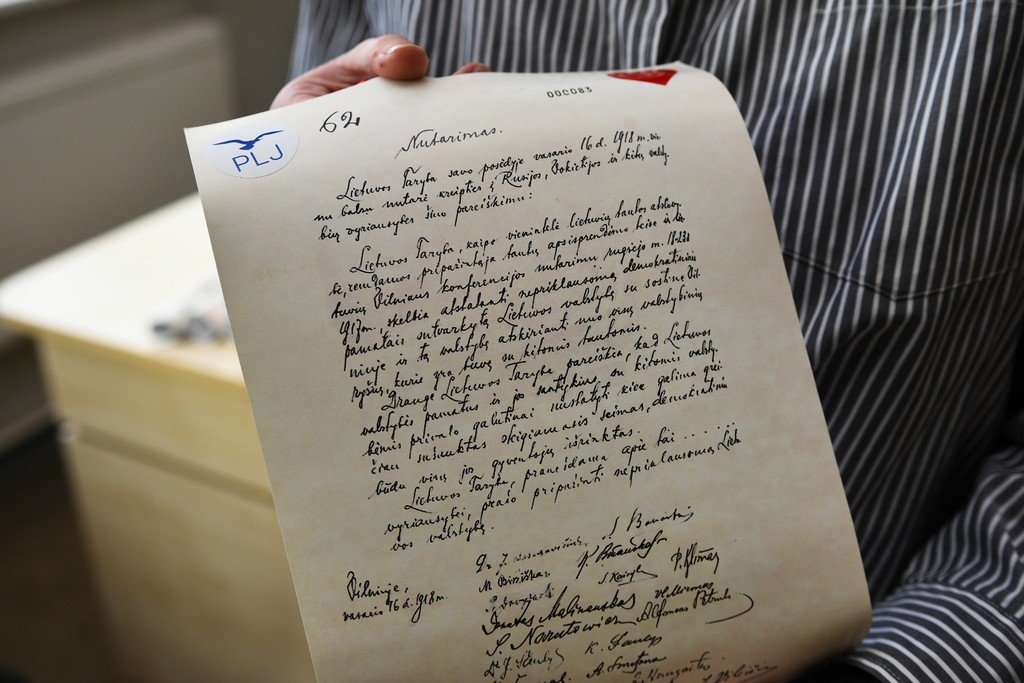 000083
62
PLJ
Nutarimas.
Lietuvos Taryba savo posėdyje vasario 16 d. 1918 m. vie-
nu balsu nutarė kreipties į Rusijos, Vokietijos ir kitų valsty-
bių vyriausybes šiuo pareiškimu:
Lietuvos Taryba, kaipo vienintelė lietuvių tautos atstovy-
bė, remdamos pripažintąja tautų apsisprendimo teise ir lie-
tuvių Vilniaus konferencijos nutarimu rugsėjo m. 18-23 d.
1917 m., skelbia atstatanti nepriklausomą demokratiniais
pamatais sutvarkytą Lietuvos valstybę su sostine Vil-
niuje ir tą valstybę atskirianti nuo visų valstybinių
ryšių, kurie yra buvę su kitomis tautomis.
Drauge Lietuvos Taryba pareiškia, kad Lietuvos
valstybės pamatus ir jos santykius su kitomis valsty-
bėmis privalo galutinai nustatyti kiek galima grei-
čiau sušauktas steigiamasis seimas, demokratiniu
būdu visų jos gyventojų išrinktas.
Lietuvos Taryba, pranešdama apie tai ......
vyriausybei, prašo pripažinti nepriklausomą Lietu-
vos valstybę.
Vilniuje,
vasario 16 d. 1918 m.
Dr. J. Basanavičius
S. Banaitis
M. Biržiška
K. Bizauskas
P. Dovydaitis
S. Kairys
P. Klimas
Donatas Malinauskas
Vl. Mironas
S. Narutowicz
Alfonsas Petrulis
Dr. J. Šaulys
K. Šaulys
A. Smetona